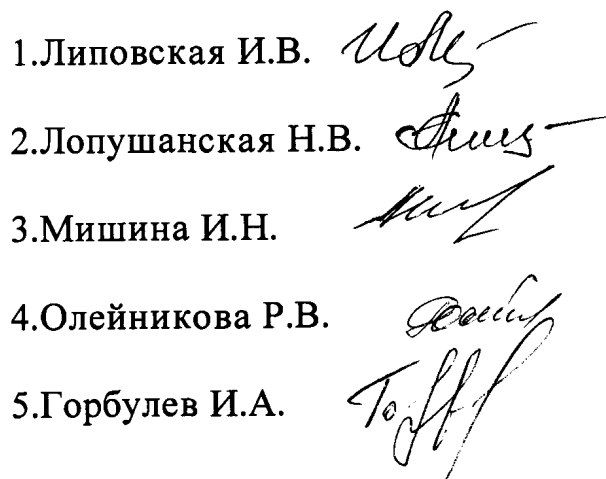 1.Липовская И.В.
2.Лопушанская Н.В.
3.Мишина И.Н.
4.Олейникова Р.В.
5.Горбулев И.А.